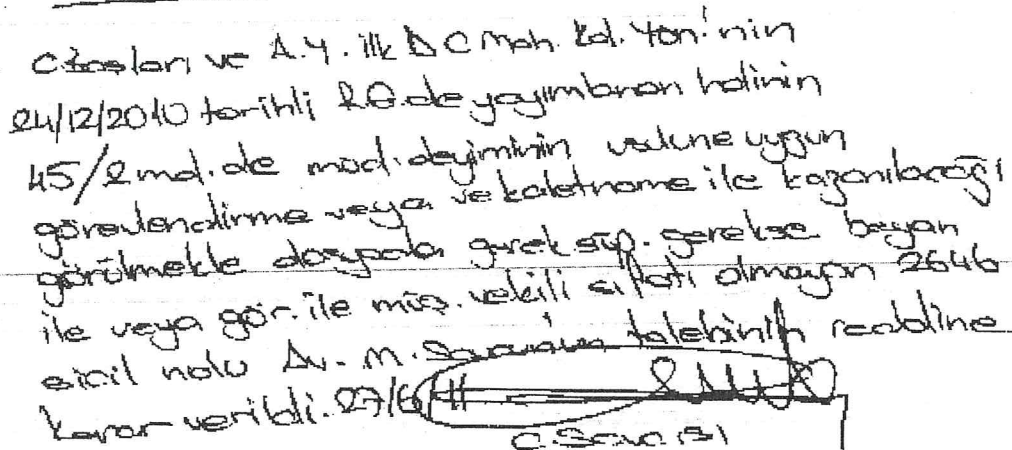 C.başları ve A.Y. ilk D C Mah. Kal. Yön.'nin
24/12/2010 tarihli R.G.de yayımlanan halinin
45/2 md. de müd. deyiminin usulune uygun
görevlendirme veya vekaletname ile kazanılacağı
görülmekle dosyada gerek süp. gerekse beyan
ile veya gör. ile müş. vekili sıfatı olmayan 2646
sicil nolu Av. M. talebinin reddine
karar verildi. 27/6/11
C. Savcısı